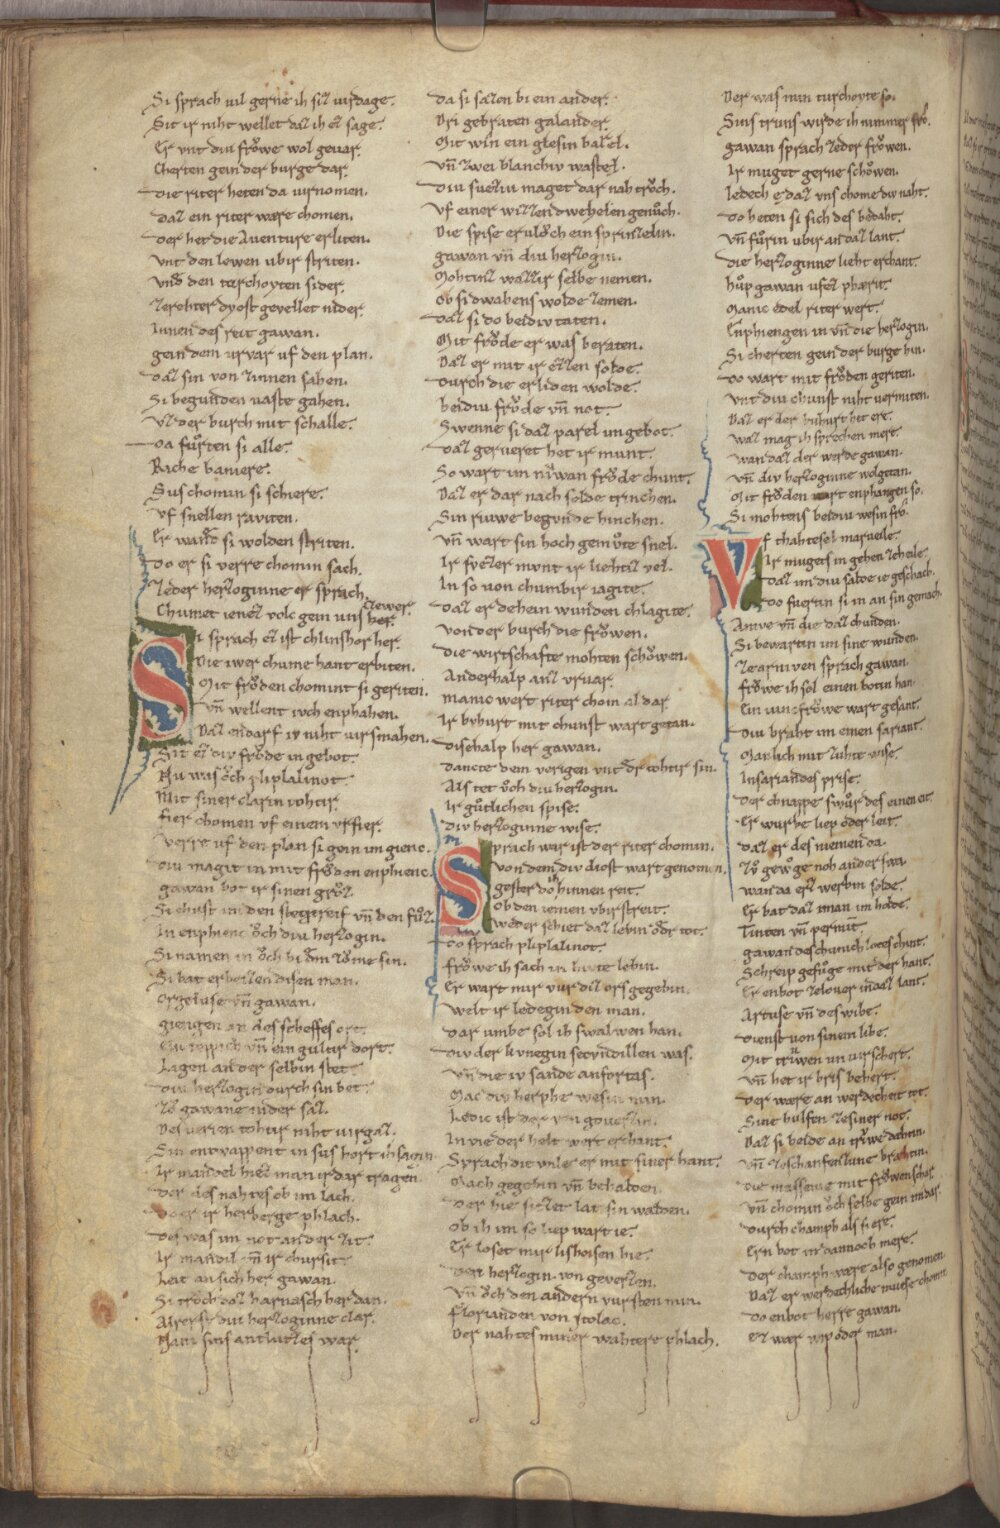 Si sprach uil gerne ih sil uirdage.
Sit ir niht wellet daz ih ez sage.
Er unt diu frowe wol geuar.
Cherten gein der burge dar.
die riter heten da uirnomen.
daz ein riter ware chomen.
der het die Auenture erliten.
unt den lewen ubir striten.
und den turchoyten sider.
zerehter dyost geuellet nider.
Innen des reit gawan.
gein dem urvar uf den plan.
daz sin von zinnen sahen.
Si begunden uaste gahen.
uz der burch mit schalle.
da furten si alle.
Riche baniere.
Sus chomin si schiere.
uf snellen raviten.
Er wand si wolden striten.
do er si verre chomin sach.
zeder herzoginne er sprach.
Chumet ienez volc gein uns zewer.
her.
Si sprach ez ist chlinshor her.
die iwer chume hant erbiten.
Mit froden chomint si geriten.
un wellent iuch enphahen.
daz endarf iv niht uirsmahen.
Sit ez div frode in gebot.
Nu was och pliplalinot.
Mit siner clarin tohtir.
fier chomen uf einem urfier.
verre uf den plan si gein im gienc.
diu magit in mit froden enphienc.
gawan bot ir sinen groz.
Si chust im den stegreif un den fuz.
In enphienc och diu herzogin.
Si namen in och bi dem zome sin.
Si bat erbeizen disen man.
Orgeluse un gawan.
giengen an des scheffes ort.
Ein teppich un ein gultir dort.
Lagen an der selbin stet.
diu herzogin durch sin bet.
zo gawane nider saz.
des verien tohtir niht uirgaz.
Sin entwappent in sus hort ih sagin.
Ir mandel hiez man ir dar tragen.
der des nahtes ob im lach.
do er ir herberge phlach.
des was im not an der zit.
Ir mandil un ir chursit.
Leit an sich her gawan.
Si troch daz harnasch her dan.
Alrerst diu herzoginne clar.
Nam sins antlutzes war.
da si sazen bi ein ander.
dri gebraten galander.
Mit win ein glesin barel.
un zwei blanchiv wastel.
diu sueziu maget dar nah troch.
uf einer wizzen dwehelen genuch.
die spise eruloch ein sprinzelin.
gawan un diu herzogin.
Mohtinz wazzir selbe nemen.
ob si dwahens wolde zemen.
daz si do beidiv taten.
Mit frode er was beraten.
daz er mit ir ezzen solde.
durch die er liden wolde.
beidiu frode un not.
Swenne si daz parel im gebot.
daz gerueret het ir munt.
So wart im niwan frode chunt.
daz er dar nach solde trinchen.
Sin riuwe begunde hinchen.
un wart sin hoch gemute snel.
Ir suezer munt ir liehtiz vel.
In so von chumbir iagite.
daz er dehein wunden chlagite.
von der burch die frowen.
die wirtschafte mohten schowen.
Anderhalp anz urvar.
manic wert riter chom al dar.
Ir buhurt mit chunst wart getan.
disehalp her gawan.
dancte dem verigen unt der tohtir sin.
Als tet och diu herzogin.
Ir gutlichen spise.
div herzoginne wise.
Sprach war ist der riter chomin.
von dem div diost wart genomin.
gester do ih hinnen reit.
Ob den iemen ubir streit.
weder schiet daz lebin oder tot.
do sprach pliplalinot.
frowe ih sach in hivte lebin.
Er wart mir vur diz ors gegebin.
welt ir ledegin den man.
dar umbe sol ih swalwen han.
div der kunegin secundillen was.
un die iv sande anfortas.
Mac div herphe wesin min.
Ledic ist der von gouerzin.
In vie der helt wert erchant.
Sprach diz unle er mit siner hant.
Mach gegebin un behalden.
der hie sizzet laz sin walden.
Ob ih im so liep wart ie.
Er loset mir lishoisen hie.
der herzogin von geverzen.
un och den andern vursten min.
florianden von itolac.
der nahtes miner wahtere phlach.
der was min turchoyte so.
Sins truns wirde ih nimmer fro.
gawan sprach zeder frowen.
Ir muget gerne schowen.
ledech e daz uns chome diu naht.
do heten si sich des bedaht.
un furin ubir an daz lant.
die herzoginne lieht erchant.
hup gawan ufez phaerit.
Manic edel riter wert.
Enphiengen in un die herzogin.
Si cherten gein der burge hin.
do wart mit froden geriten.
unt diu chunst niht vermiten.
daz er der buhurt het ere.
waz mag ih sprechen mere.
wan daz der werde gawan.
un div herzoginne wolgetan.
Mit froden wart enphangen so.
Si mohtens beidiu wesin fro.
Uf tschahtesel marueile.
Ir mugets im gehen zeheile.
daz im diu salde ie geschach.
do fuerin si in an sin gemach.
Arnive un die daz chunden.
Si bewartin im sine wunden.
ze arniven sprach gawan.
frowe ih sol einen botin han.
Ein iuncfrowe wart gesant.
diu braht im einen sariant.
Manlich mit zuhte wise.
In sariandes prise.
der chnappe swur des einen eit.
Er wurbe liep oder leit.
daz er des niemen da.
zo gewoge noh anderswa.
wan da erz werbin solde.
Er bat daz man im holde.
Tinten un permint.
gawan des chunich lotes chint.
Schreip gefuge mit der hant.
Er enbot zelouer indaz lant.
Artuse un des wibe.
dienst von sinem libe.
Mit triwen un uirschert.
un het ir bris behert.
der were an werdecheit tot.
Sine hulfen zesiner not.
daz si beide an triwe dahtin.
un zeschanfenzune brahtin.
die massenie mit frowen schar.
un chomin och selbe gein im dar.
durch champh als si ere.
Ern bot in dannoch mere.
der champh were also genomen.
daz er werdechliche muese chomen.
do enbot herre gawan.
Ez wer wip oder man.